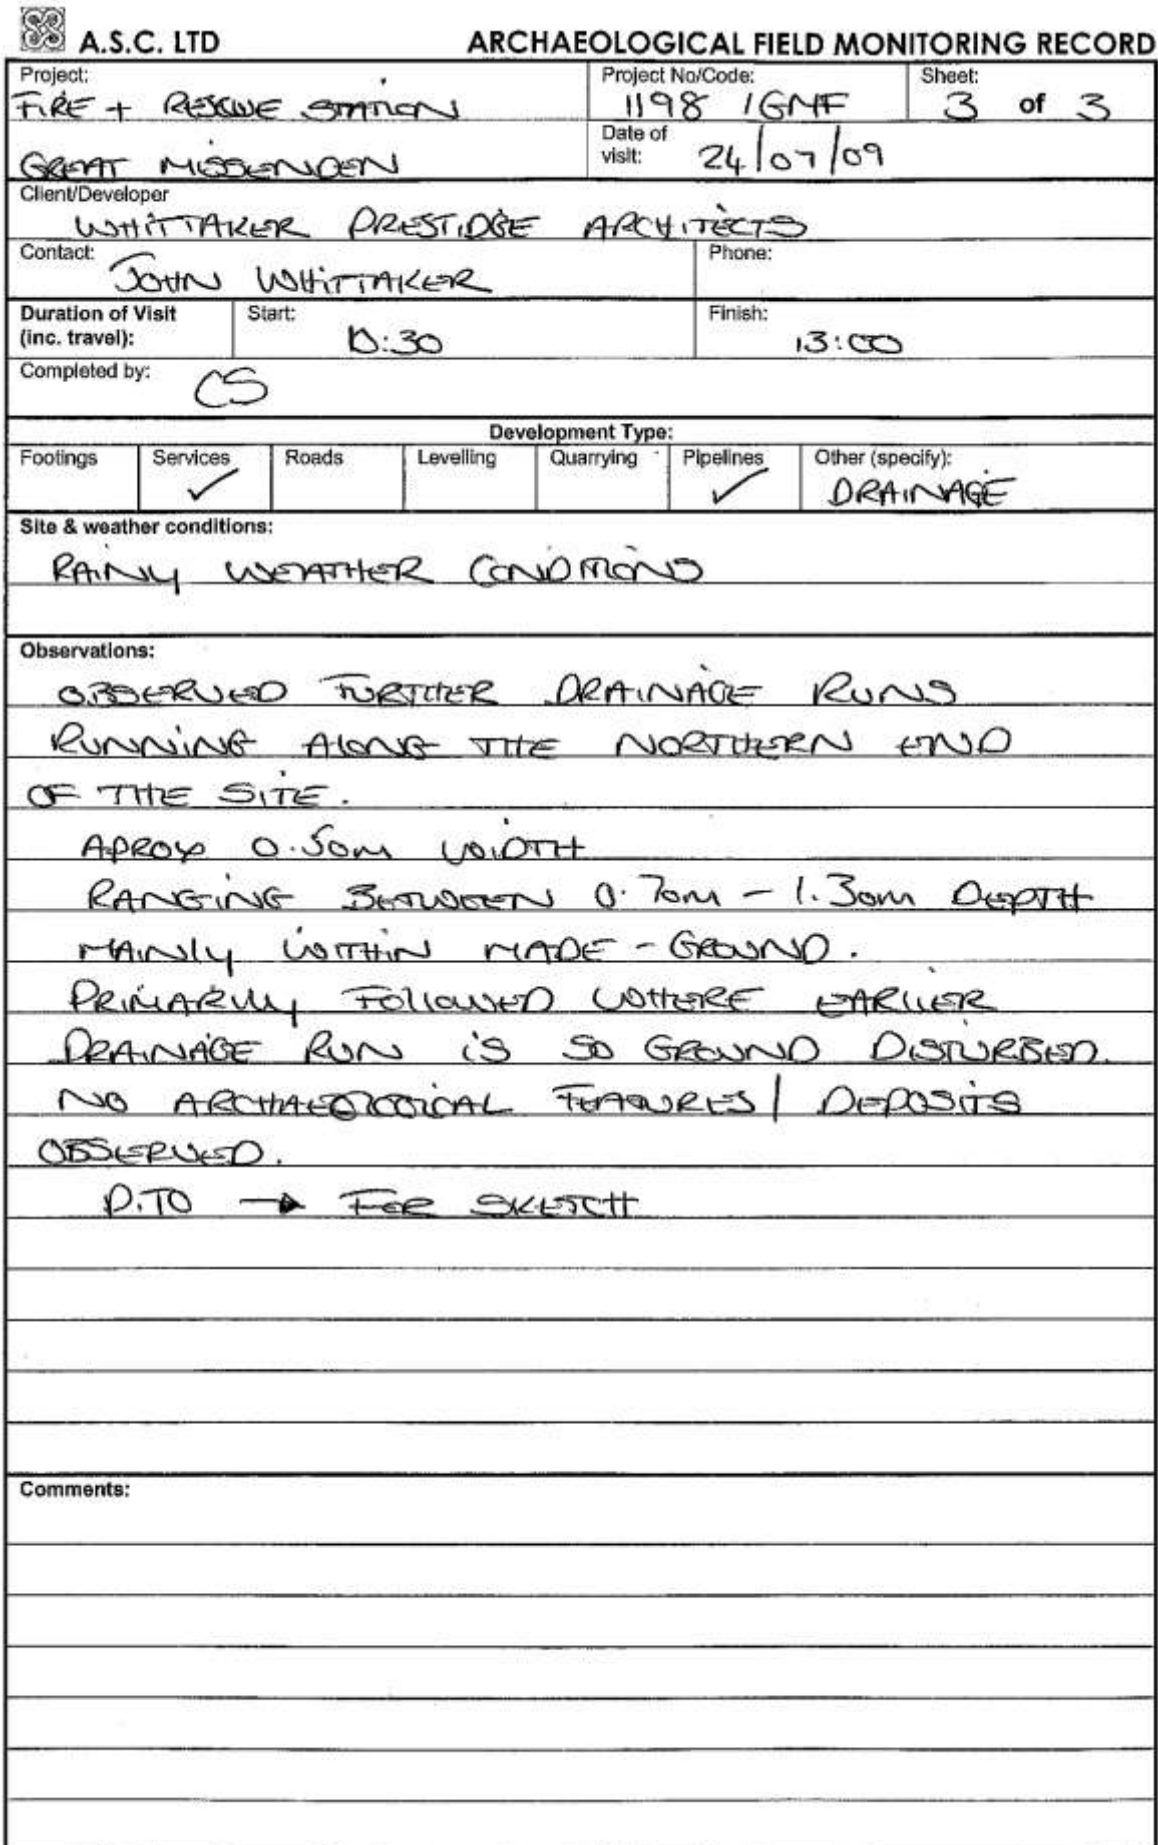 A.S.C. LTD
ARCHAEOLOGICAL FIELD MONITORING RECORD
Project:
FIRE + RESCUE STATION
GREAT MISSENDEN
Project No/Code:
1198 /GMF
Sheet:
3 of 3
Date of
visit:
24/07/09
Client/Developer
WHITTAKER PRESTIDGE ARCHITECTS
Contact:
JOHN WHITTAKER
Phone:
Duration of Visit
(inc. travel):
Start:
10:30
Finish:
13:00
Completed by:
CS
Development Type:
Footings
Services ✓
Roads
Levelling
Quarrying
Pipelines ✓
Other (specify):
DRAINAGE
Site & weather conditions:
RAINY WEATHER CONDITIONS
Observations:
OBSERVED FURTHER DRAINAGE RUNS
RUNNING ALONG THE NORTHERN END
OF THE SITE.
APROX 0.50m WIDTH
RANGING BETWEEN 0.70m - 1.30m DEPTH
MAINLY WITHIN MADE-GROUND.
PRIMARILY FOLLOWED WHERE EARLIER
DRAINAGE RUN IS SO GROUND DISTURBED.
NO ARCHAEOLOGICAL FEATURES/DEPOSITS
OBSERVED.
P.TO → FOR SKETCH
Comments: